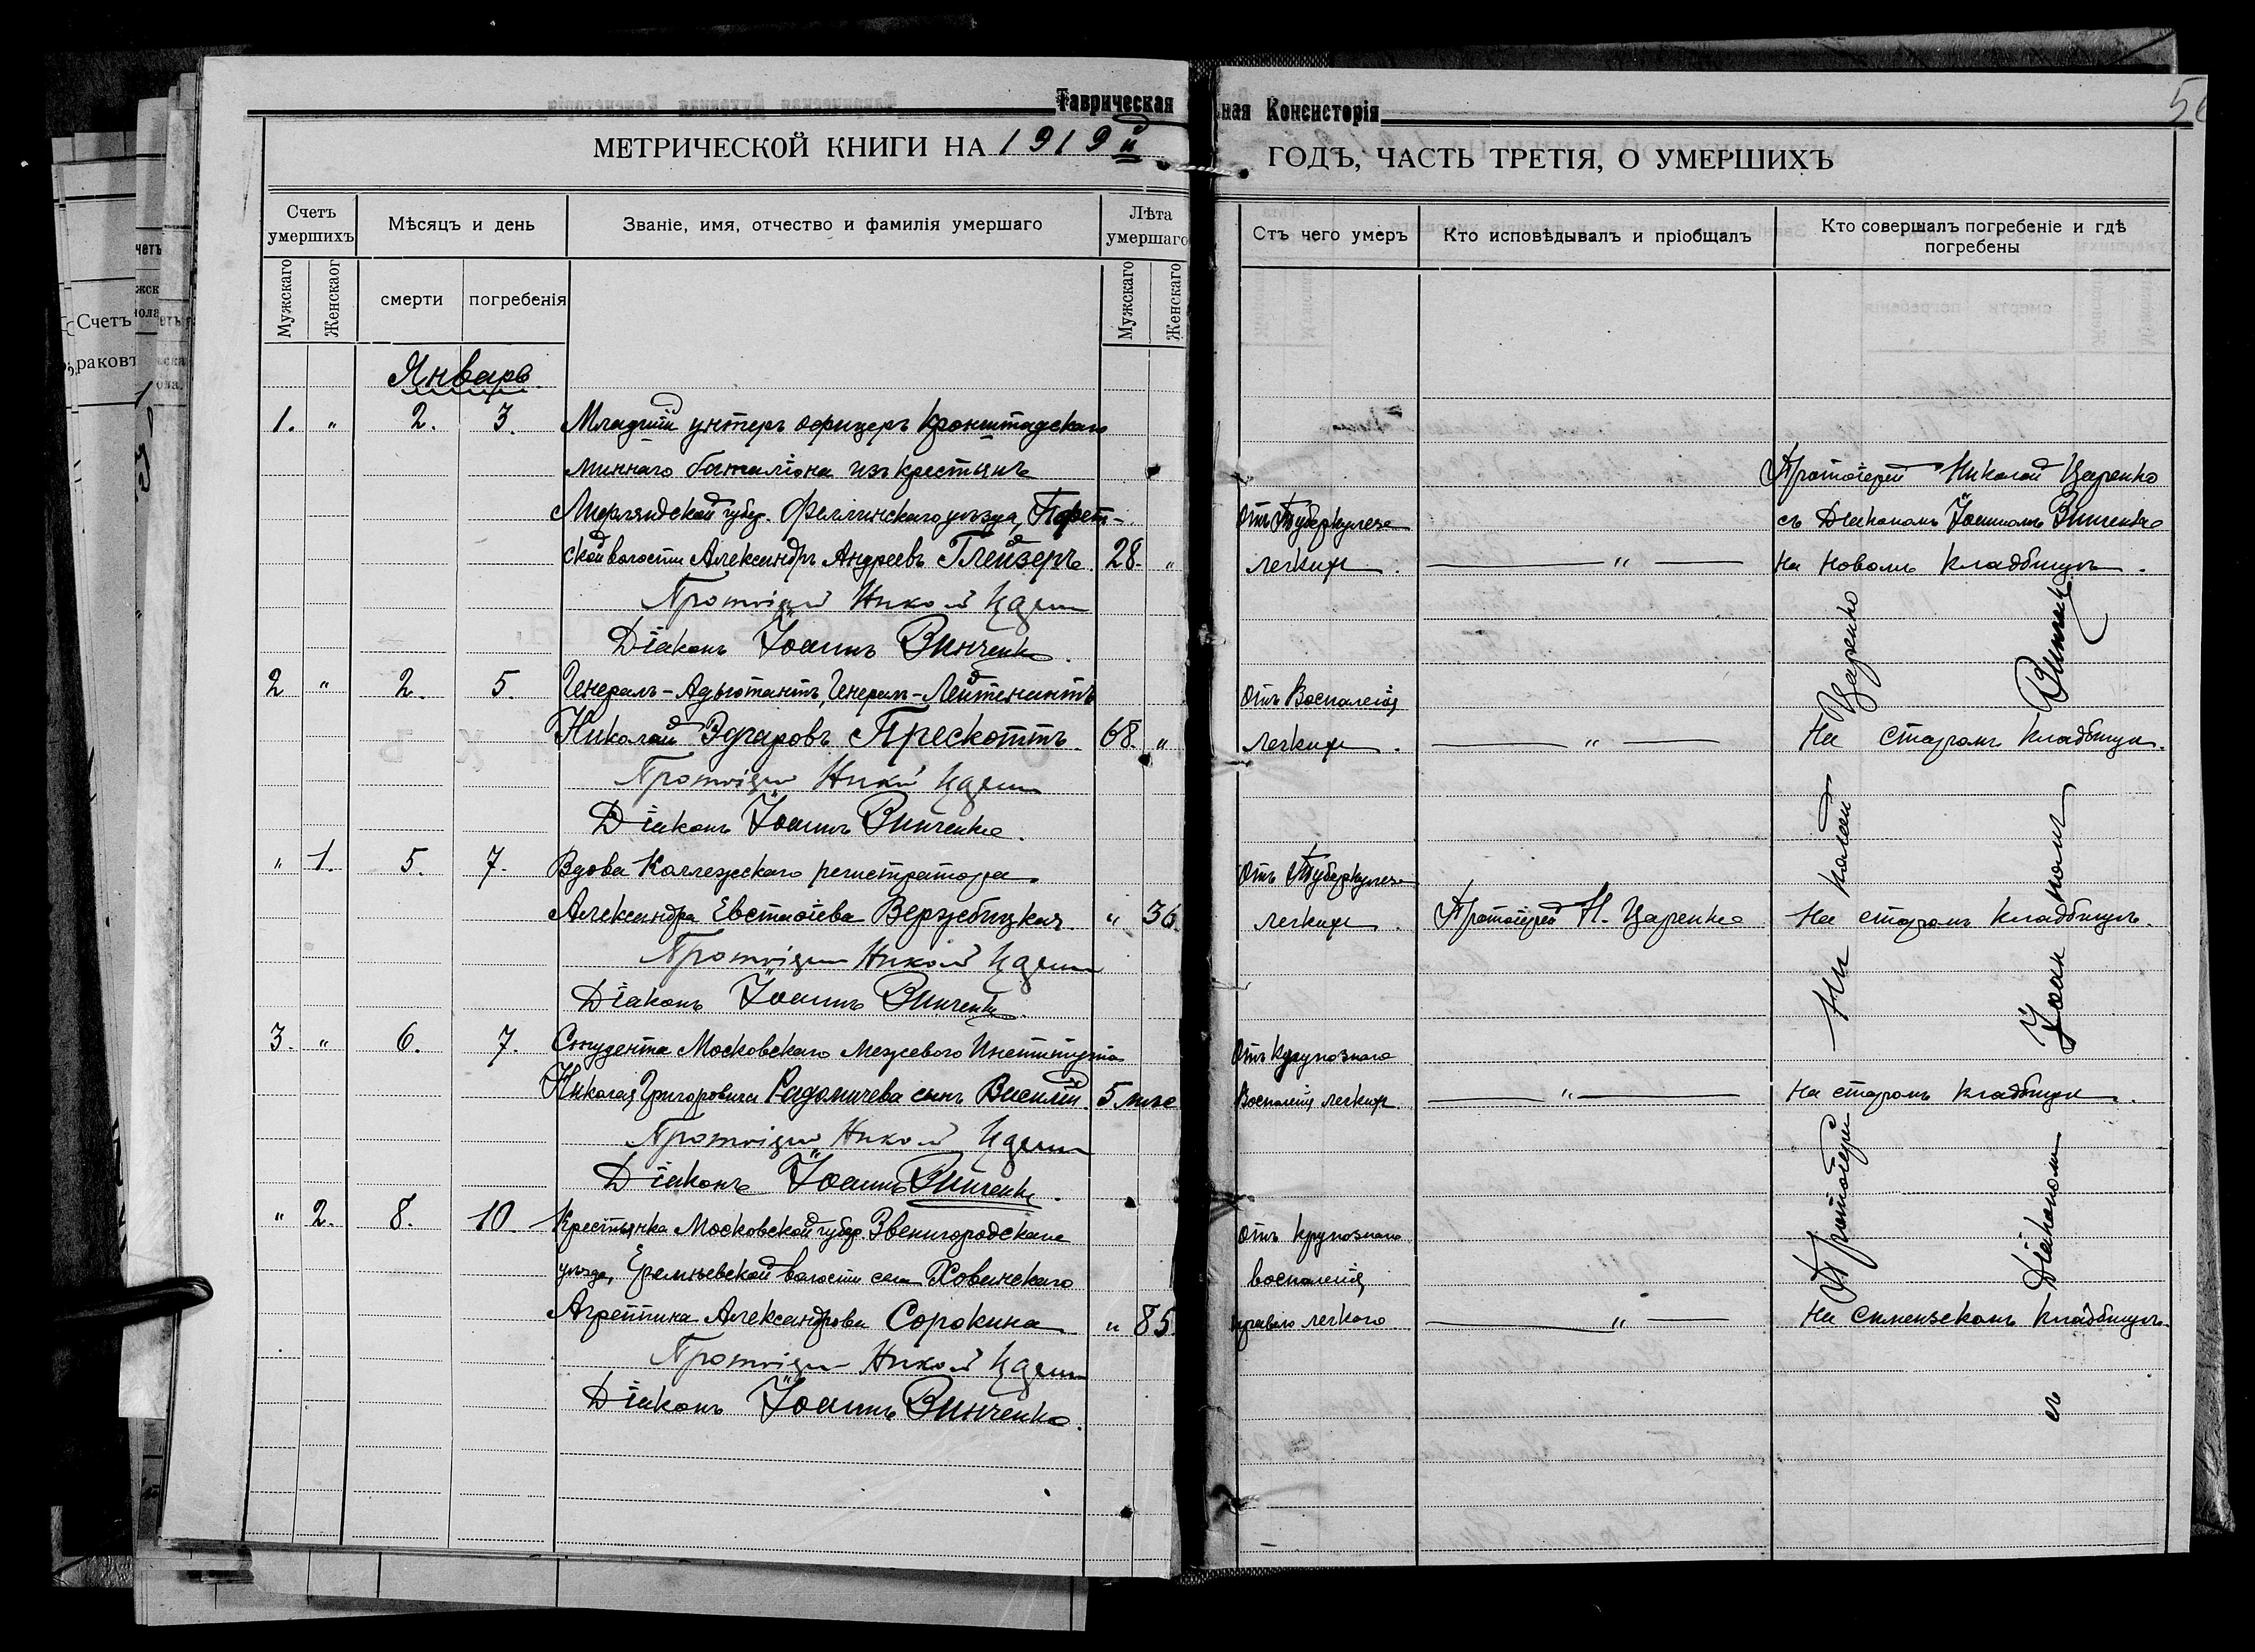 Таврическая
ная Консисторія
МЕТРИЧЕСКОЙ КНИГИ НА 1919й
ГОДЪ, ЧАСТЬ ТРЕТІЯ, О УМЕРШИХЪ
Счетъ умершихъ
Мѣсяцъ и день
Званіе, имя, отчество и фамилія умершаго
Лѣта умершаго
Стъ чего умеръ
Кто исповѣдывалъ и пріобщалъ
Кто совершалъ погребеніе и гдѣ погребены
Мужскаго
Женскаог
смерти
погребенія
Мужскаго
Женскаго
Январь
1. " 2. 3. Младшій унтеръ офицеръ Кронштадскаго
миннаго баталіона изъ крестьянъ
Лифляндской губер. Феллинскаго уѣзда,
ской волости Александръ Андреевъ Глейзеръ 28. "
Отъ Туберкулеза
легкихъ. "
Протоіерей Николай Царенко
съ Діакономъ Іоанномъ Винченко
На новомъ кладбищѣ.
Протоіерей Николай Царенко
Діаконъ Іоаннъ Винченко.
2 " 2. 5. Генералъ-Адъютантъ, Генералъ-Лейтенантъ
Николай Эдгаровъ Прескоттъ. 68. "
Отъ Воспаленія
легкихъ. "
На старомъ кладбищѣ.
Протоіерей Николай Царенко
Діаконъ Іоаннъ Винченко.
" 1. 5. 7. Вдова Коллежскаго регистратора
Александра Евстафіева Вержебицкая. " 36.
Отъ Туберкулеза
легкихъ. Протоіерей Н. Царенко
На старомъ кладбищѣ.
Протоіерей Николай Царенко
Діаконъ Іоаннъ Винченко.
3. " 6. 7. Студента Московскаго Межевого Института
Николая Григоровича Радомичева сынъ Василій. 5 мѣс
Отъ Крупознаго
Воспаленія легкихъ. "
На старомъ кладбищѣ.
Протоіерей Николай Царенко
Діаконъ Іоаннъ Винченко.
" 2. 8. 10. Крестьянка Московской губер. Звенигородскаго
уѣзда, Еремѣевской волости села Ховинскаго
Агриппина Александрова Сорокина " 85
Отъ крупознаго
воспаленія
праваго легкаго "
На симеизскомъ кладбищѣ.
Протоіерей Николай Царенко
Діаконъ Іоаннъ Винченко.
Протоіерей Николай Царенко
съ Діакономъ Іоанномъ Винченко
Счетъ
раковъ